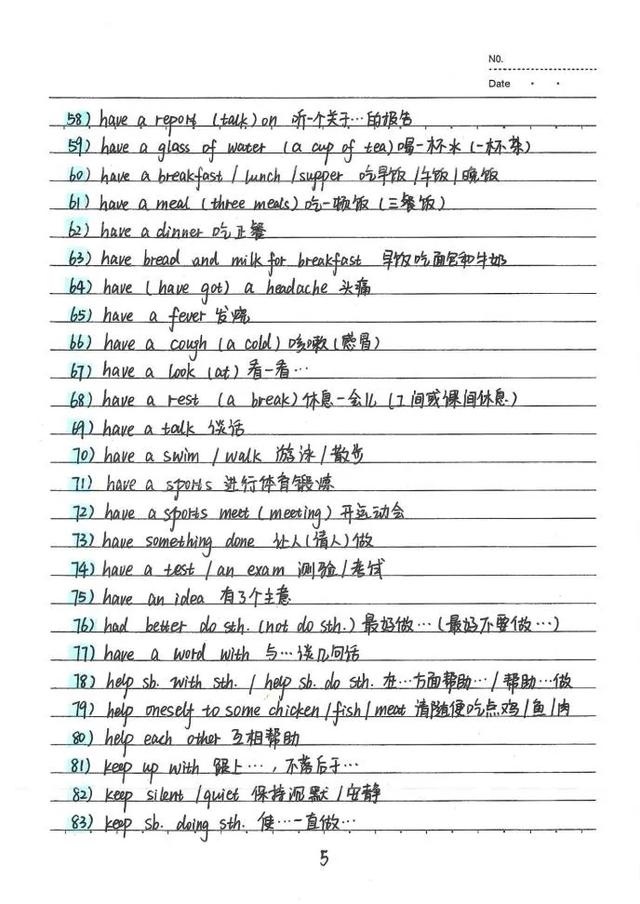 NO.
Date · ·
58) have a report (talk) on 听一个关于…的报告
59) have a glass of water (a cup of tea) 喝一杯水 (一杯茶)
60) have a breakfast / lunch / supper 吃早饭 / 午饭 / 晚饭
61) have a meal (three meals) 吃一顿饭 (三餐饭)
62) have a dinner 吃正餐
63) have bread and milk for breakfast 早饭吃面包和牛奶
64) have (have got) a headache 头痛
65) have a fever 发烧
66) have a cough (a cold) 咳嗽 (感冒)
67) have a look (at) 看一看…
68) have a rest (a break) 休息一会儿 (工间或课间休息)
69) have a talk 谈话
70) have a swim / walk 游泳 / 散步
71) have a sports 进行体育锻炼
72) have a sports meet (meeting) 开运动会
73) have something done 让人 (请人) 做
74) have a test / an exam 测验 / 考试
75) have an idea 有了个主意
76) had better do sth. (not do sth.) 最好做… (最好不要做…)
77) have a word with 与…谈几句话
78) help sb. with sth. / help sb. do sth. 在…方面帮助… / 帮助…做
79) help oneself to some chicken / fish / meat 请随便吃点鸡 / 鱼 / 肉
80) help each other 互相帮助
81) keep up with 跟上…, 不落后于…
82) keep silent / quiet 保持沉默 / 安静
83) keep sb. doing sth. 使…一直做…
5